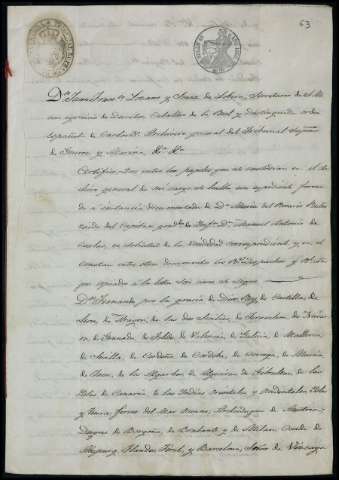 63
Dn. Juan y de Secretario de S. M.
con ejercicio de Decretos Caballero de la Real y distinguida orden
español de Carlos 3º Archivero general del Tribunal Supremo
de Guerra y Marina &a. &a.
Certifico: Que entre los papeles que se custodian en el Ar-
chivo general de mi cargo se halla un expediente formado
de a instancia documentada de Dª Maria del Rosario
viuda del Capitan gradº de Infª Dn. Manuel Antonio de
en solicitud de la Viudedad correspondiente y en el
constan entre otros documentos los Rs. despachos y
que copiados a la letra son como se sigue
Dn. Fernando por la gracia de Dios Rey de Castilla, de
Leon, de Aragon, de las dos Sicilias, de Jerusalen, de Navar-
ra, de Granada, de Toledo, de Valencia, de Galicia, de Mallorca,
de Sevilla, de Cerdeña, de Cordoba, de Corcega, de Murcia,
de Jaen, de los Algarbes, de Algeciras, de Gibraltar, de las
Islas de Canaria, de las Indias Orientales y Occidentales, Islas
y tierra firme del Mar Oceano, Archiduque de Austria,
Duque de Borgoña, de Brabante y de Milan, Conde de
Abspurg, Flandes, Tirol, y Barcelona, Señor de Vizcaya